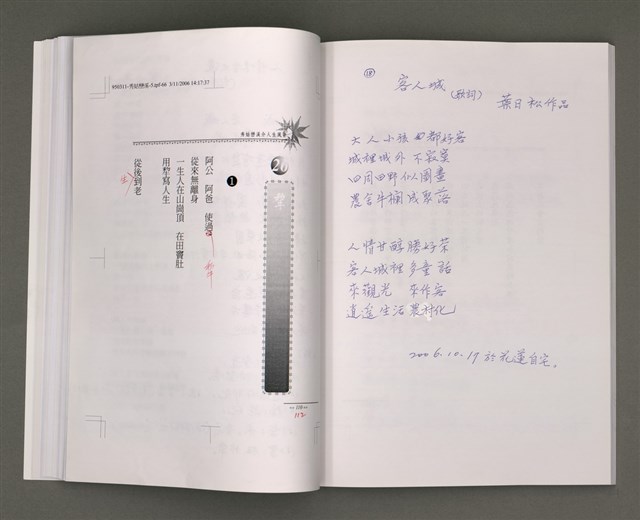 850311-秀姑戀溪-5.tpf 66 3/11/2006 14:17:37
❶
阿公 阿爸 使過
從來無離身
一生人在山崗頂 在田竇肚
用犁寫人生
從後到老
生
112
⑱
客人城 (歌詞)
葉日松作品
大人小孩都好客
城裡城外 不寂寞
四周田野似圖畫
農舍牛欄成聚落
人情甘醇勝好茶
客人城裡多童話
來觀光 來作客
逍遙生活農村化
2006.10.17 於花蓮自宅。